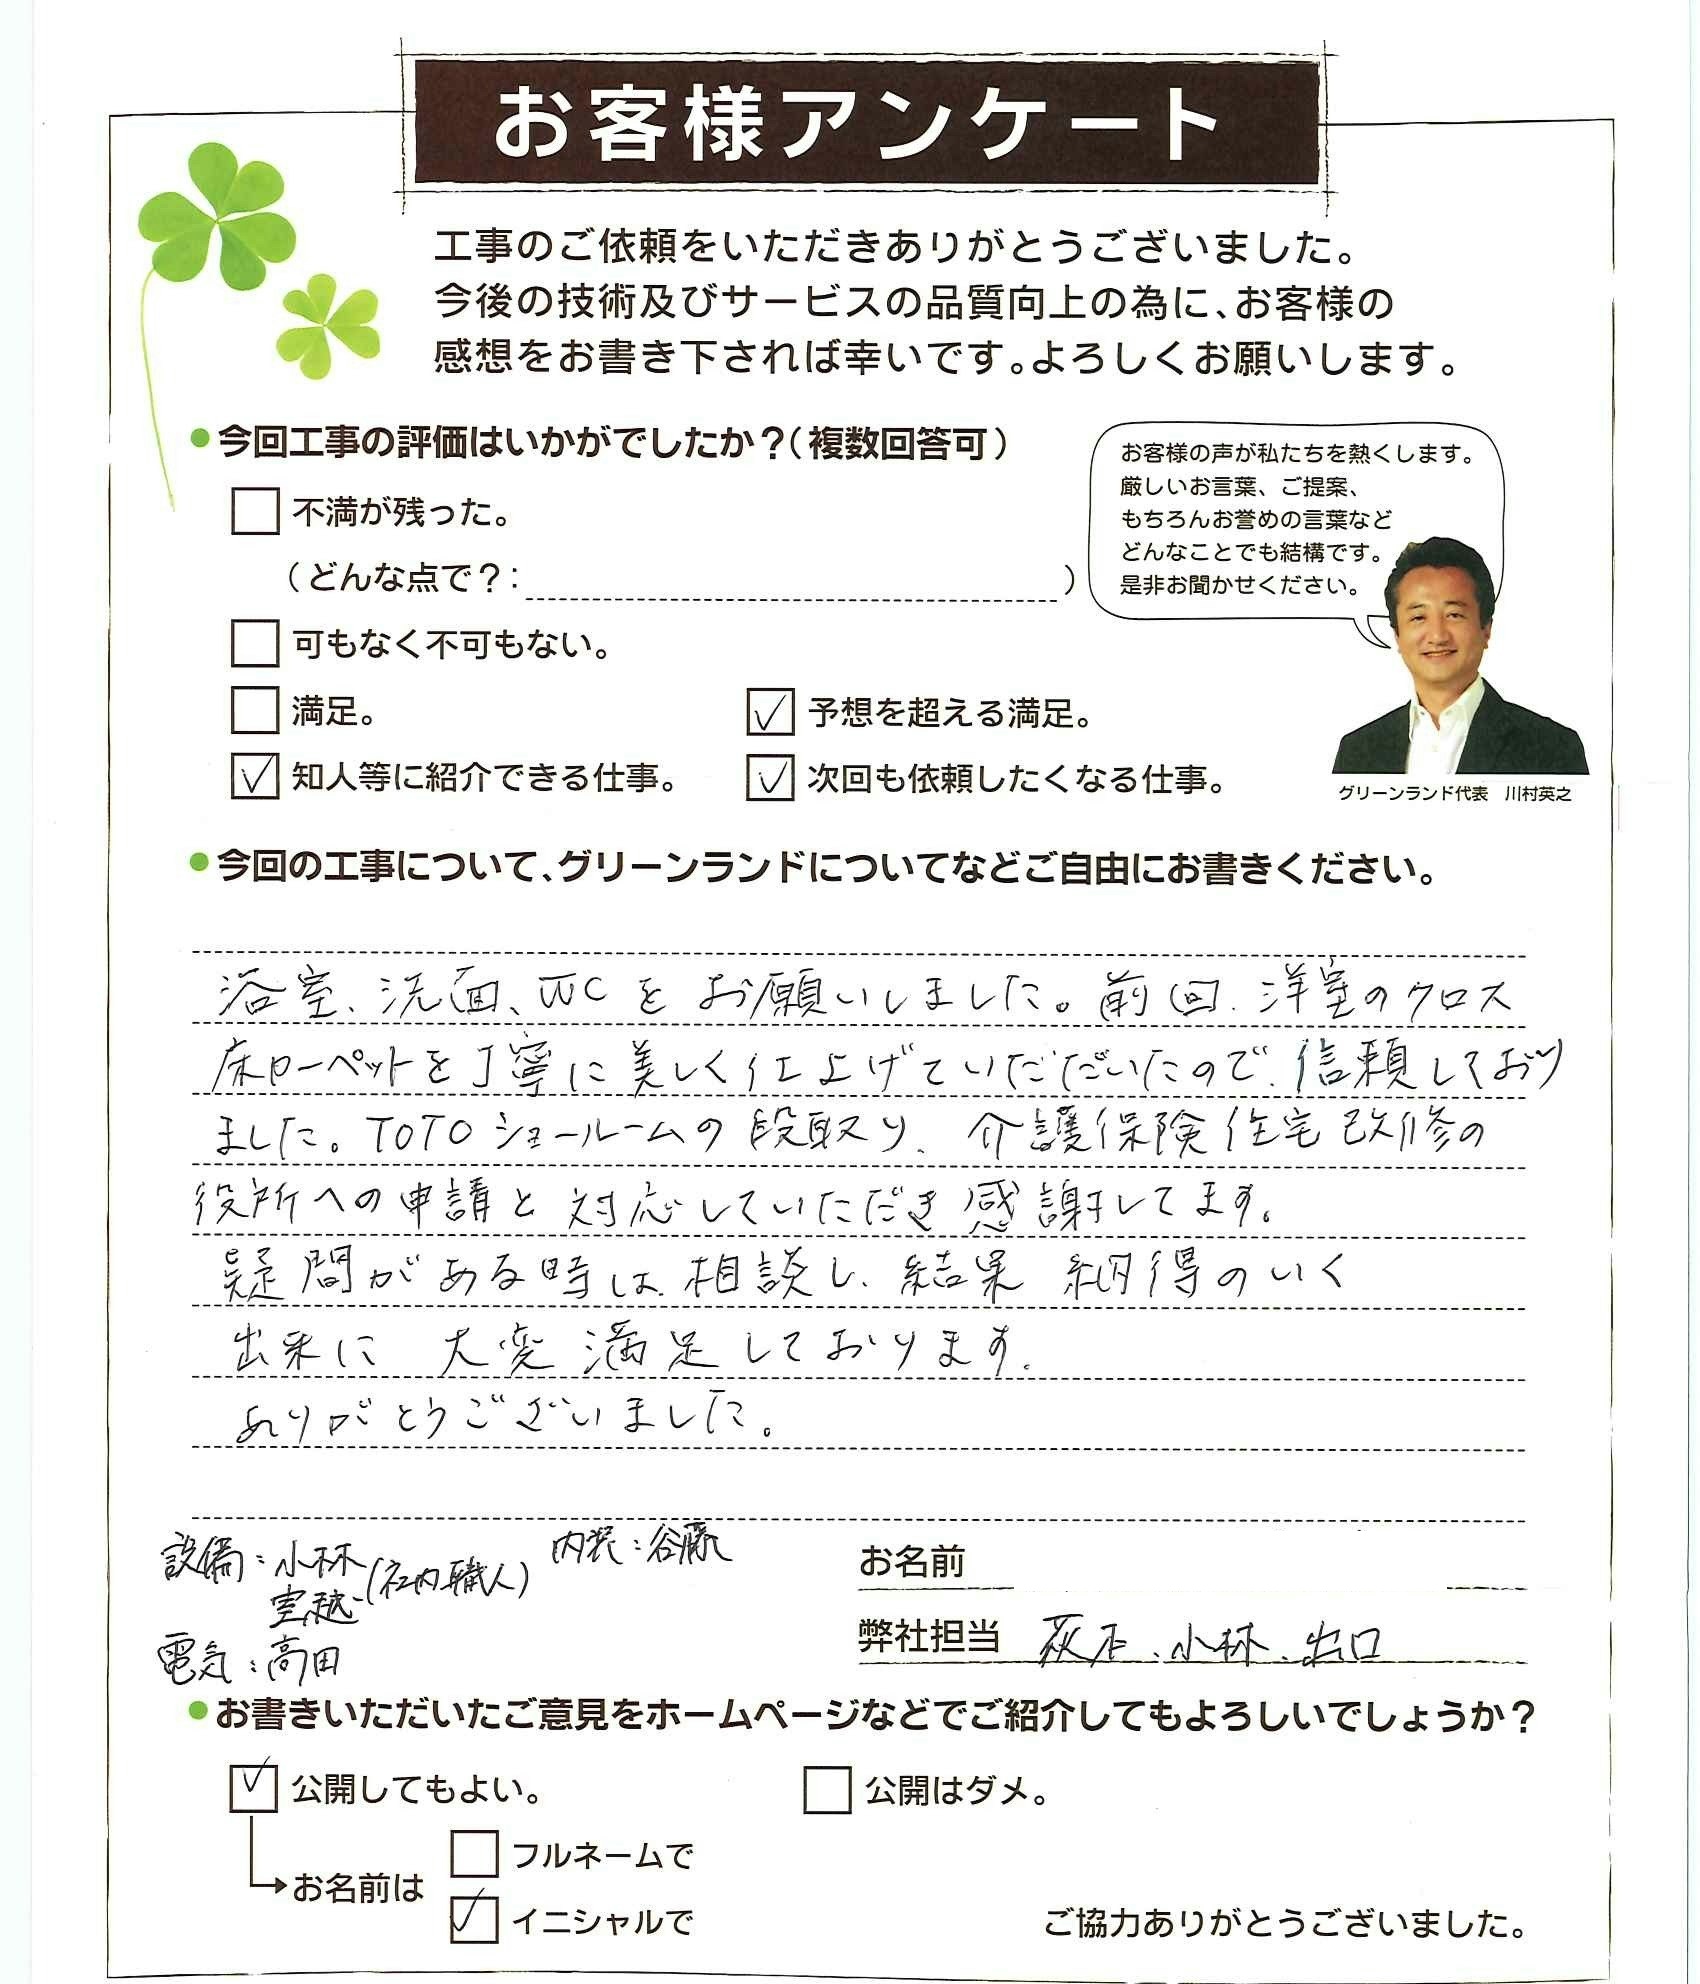 お客様アンケート
工事のご依頼をいただきありがとうございました。
今後の技術及びサービスの品質向上の為に、お客様の
感想をお書き下されば幸いです。よろしくお願いします。
●今回工事の評価はいかがでしたか？（複数回答可）
不満が残った。
（どんな点で？： ）
可もなく不可もない。
満足。
予想を超える満足。
知人等に紹介できる仕事。
次回も依頼したくなる仕事。
お客様の声が私たちを熱くします。
厳しいお言葉、ご提案、
もちろんお誉めの言葉など
どんなことでも結構です。
是非お聞かせください。
グリーンランド代表 川村英之
●今回の工事について、グリーンランドについてなどご自由にお書きください。
浴室、洗面、WCをお願いしました。前回、洋室のクロス
床カーペットを丁寧に美しく仕上げていただだいたので、信頼しており
ました。TOTOショールームの段取り、介護保険住宅改修の
役所への申請と対応していただき感謝してます。
疑問がある時は相談し、結果 納得のいく
出来に 大変満足しております。
ありがとうございました。
設備：小林
室越（社内職人）
内装：谷藤
電気：高田
お名前
弊社担当 小林、出口
●お書きいただいたご意見をホームページなどでご紹介してもよろしいでしょうか？
公開してもよい。
公開はダメ。
お名前は
フルネームで
イニシャルで
ご協力ありがとうございました。